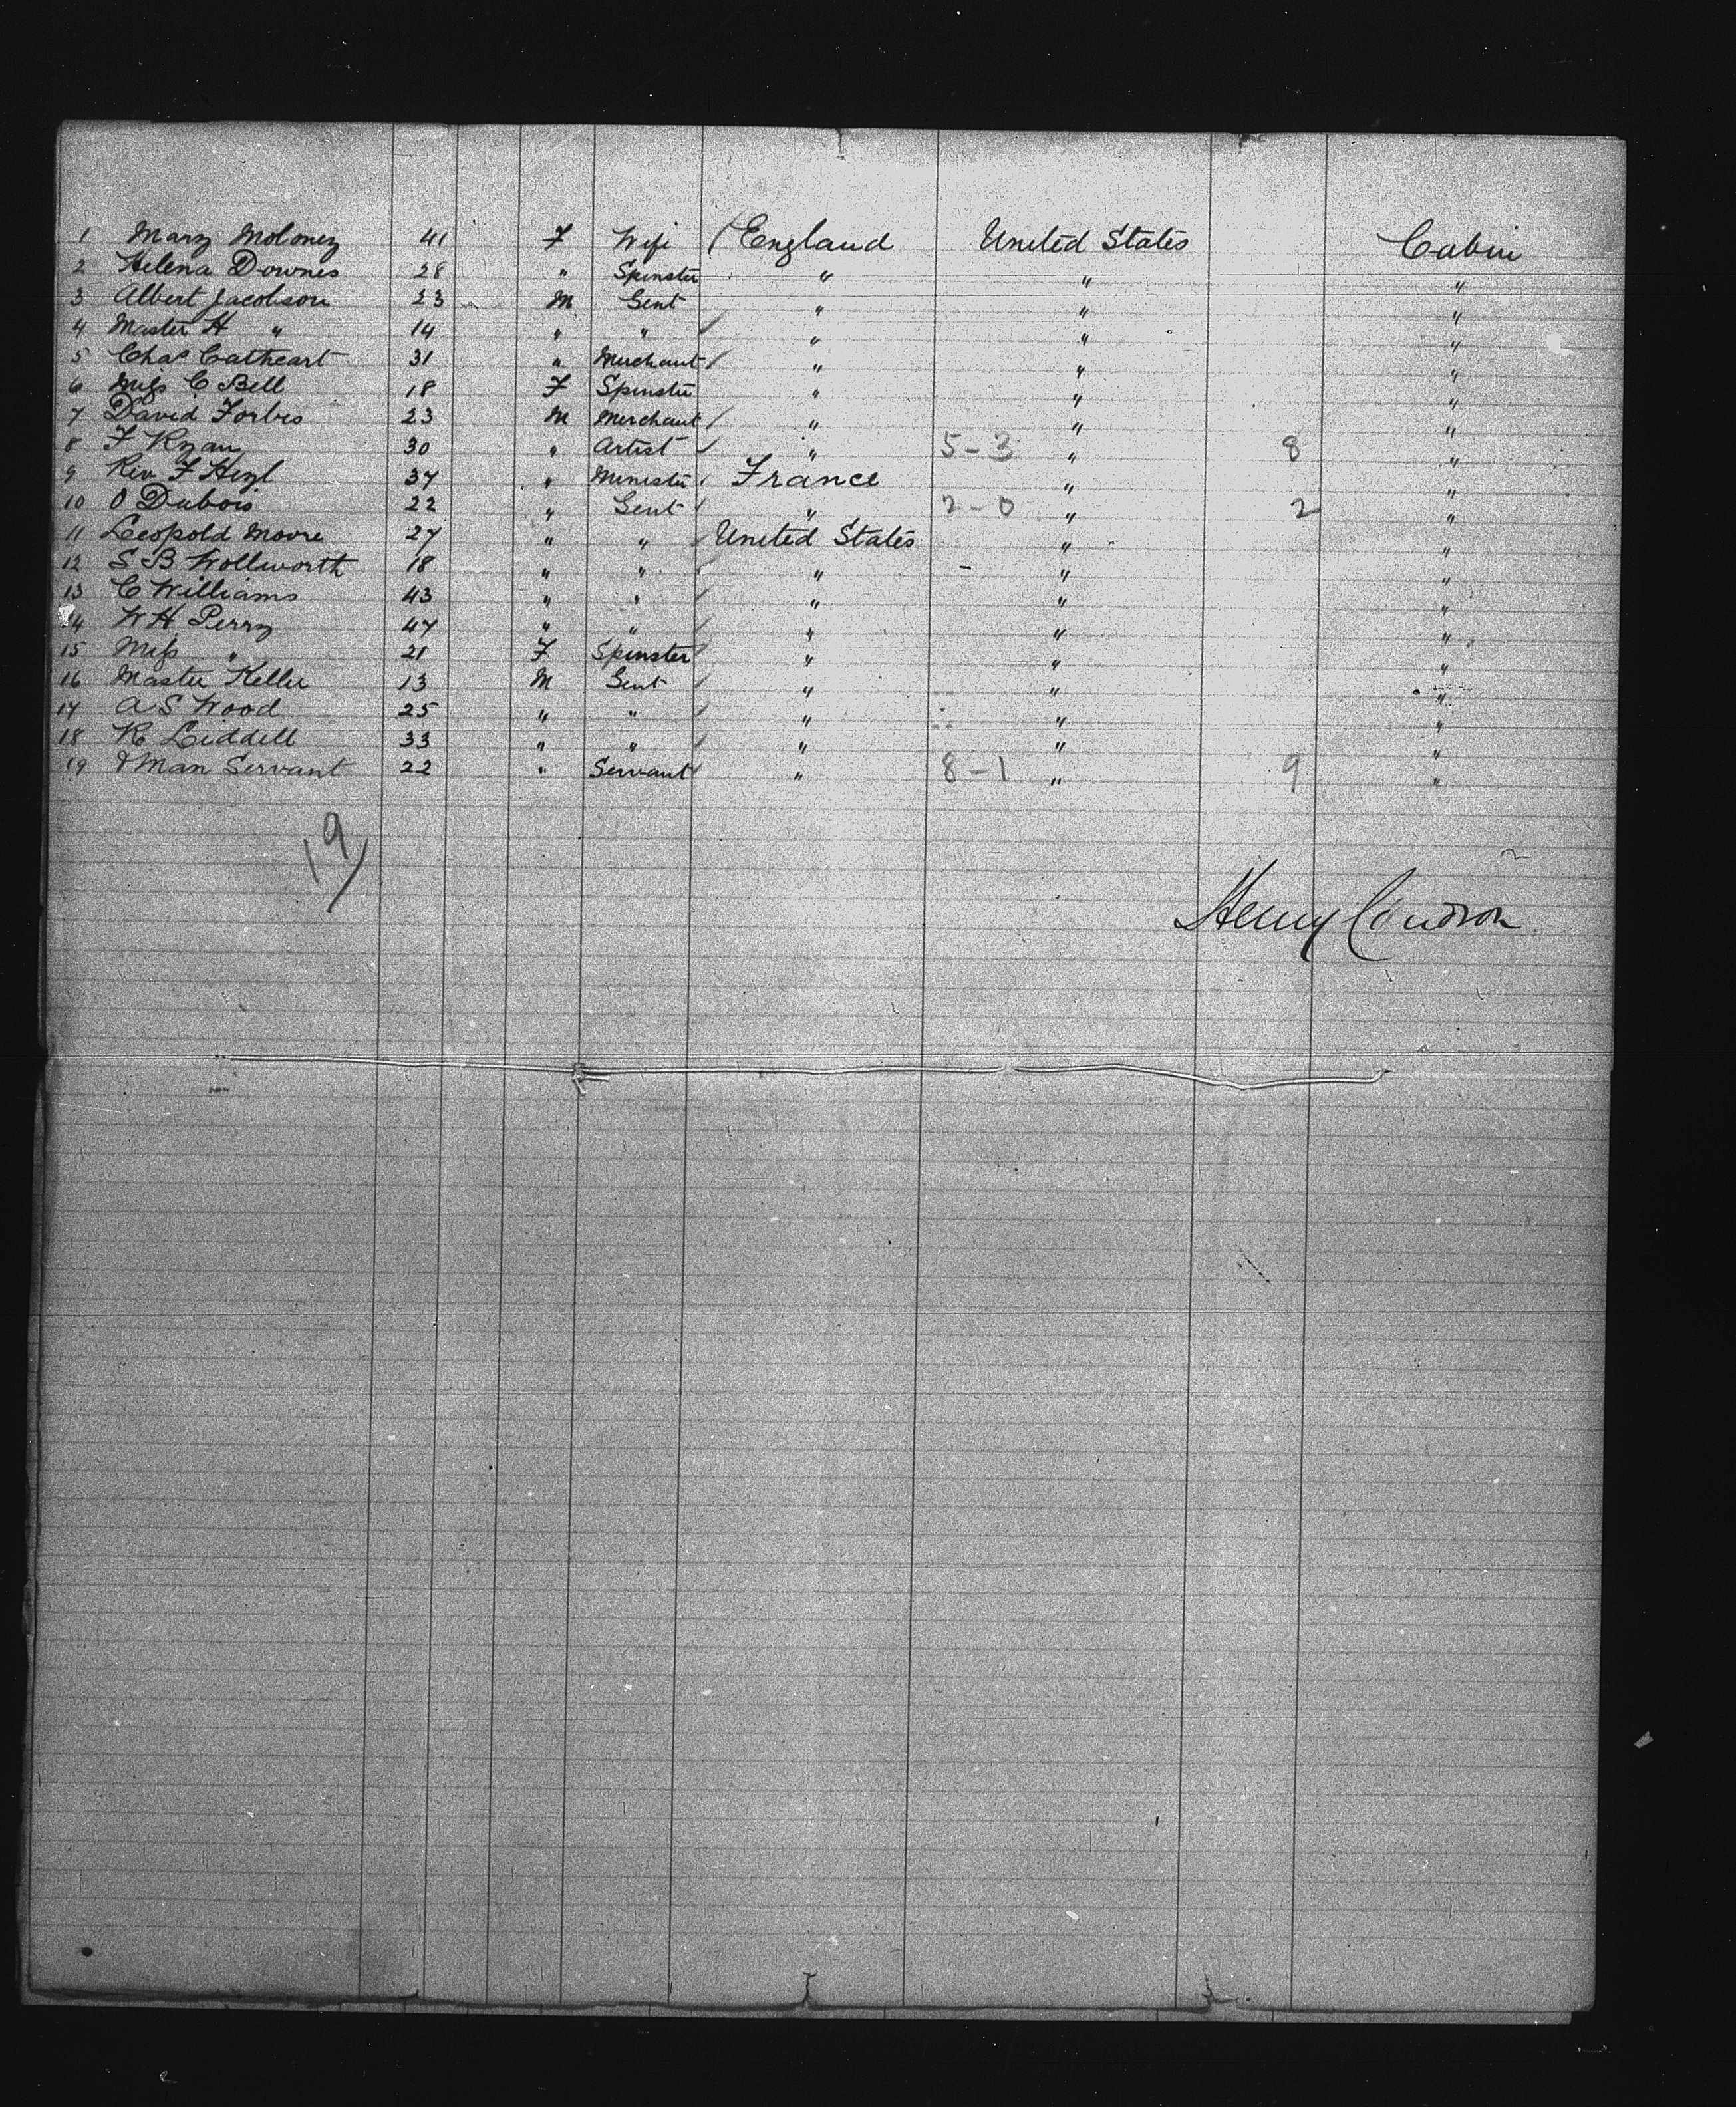 1 Mary Moloney 41 F Wife / England United States Cabin
2 Helena Downes 28 " Spinster " " "
3 Albert Jacobson 23 M Gent " " "
4 Master H " 14 " " / " " "
5 Chas Cathcart 31 " Merchant / " " "
6 Miss C Bell 18 F Spinster " " "
7 David Forbes 23 M Merchant / " " "
8 F Ryan 30 " Artist / " 5-3 " 8 "
9 Rev F 37 " Minister / France " "
10 O Dubois 22 " Gent / " 2-0 " 2 "
11 Leopold Moore 27 " " / United States " "
12 S B Wollworth 18 " " / " - " "
13 C Williams 43 " " / " " "
14 W H Perry 47 " " / " " "
15 Miss " 21 F Spinster / " " "
16 Master Keller 13 M Gent / " " "
17 A S Wood 25 " " / " " "
18 R Liddell 33 " " / " " "
19 & Man Servant 22 " Servant / " 8-1 " 9 "
19/
Henry